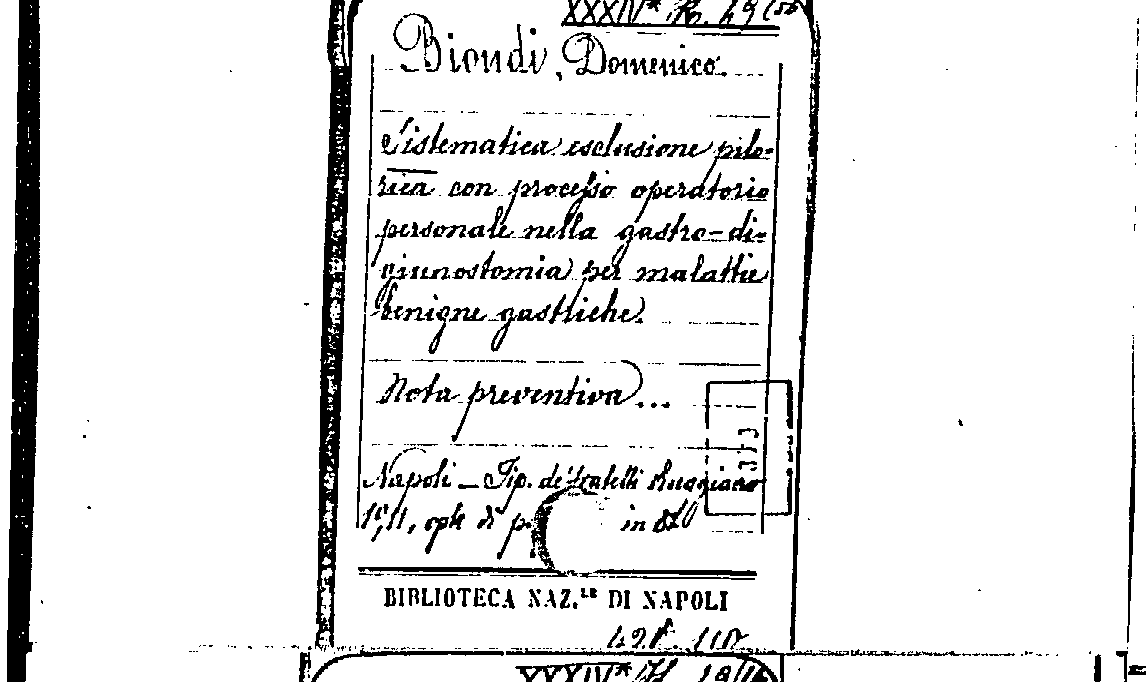 XXXIVa
Biondi, Domenico.
Sistematica esclusione pilo-
rica con processo operatorio
personale nella gastro-di-
giunostomia per malattie
benigne gastriche.
Nota preventiva...
Napoli – Tip. de' fratelli Ruggiano
1911, in 8º
BIBLIOTECA NAZ.LE DI NAPOLI
XXXIVa